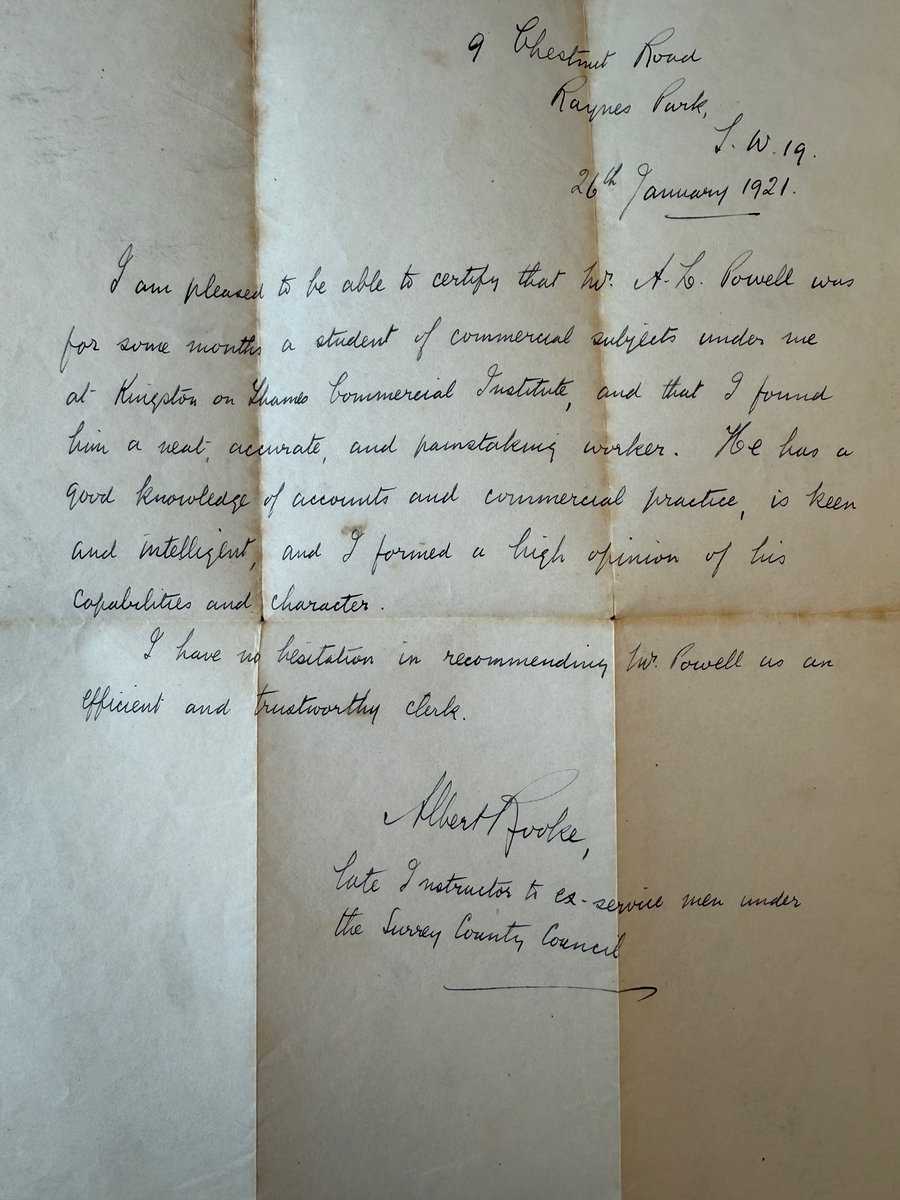 9 Chestnut Road
Raynes Park,
S. W. 19.
26th January 1921.
I am pleased to be able to certify that Mr. A. L. Powell was
for some months a student of commercial subjects under me
at Kingston on Thames Commercial Institute, and that I found
him a neat, accurate, and painstaking worker. He has a
good knowledge of accounts and commercial practice, is keen
and intelligent, and I formed a high opinion of his
capabilities and character.
I have no hesitation in recommending Mr. Powell as an
efficient and trustworthy clerk.
Albert Rooke,
late Instructor to ex-service men under
the Surrey County Council